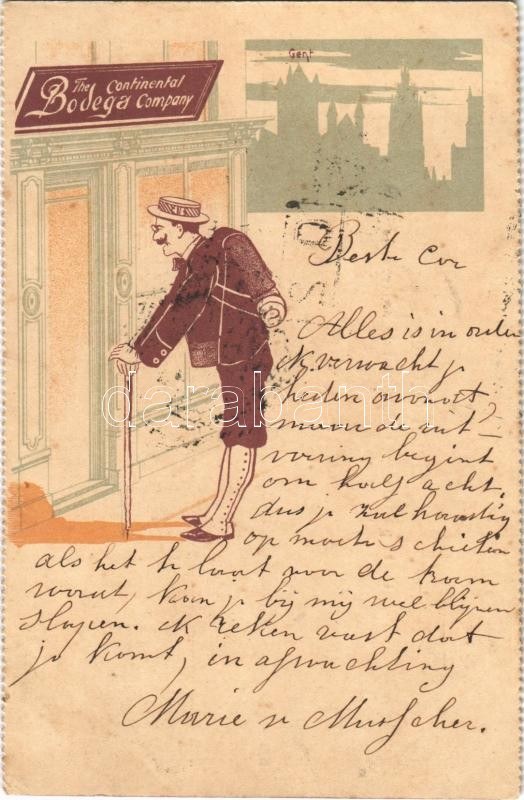 The Continental
Bodega Company
Gent
Beste Cor
Alles is in orde
ik verwacht je
heden avond,
maar de uit-
voering begint
om half acht.
dus je zal haastig
op moeten schieten
als het te laat voor de tram
wordt, kan je bij mij wel blijven
slapen. ik reken vast dat
je komt, in afwachting
Marie v Musscher.
darabanth